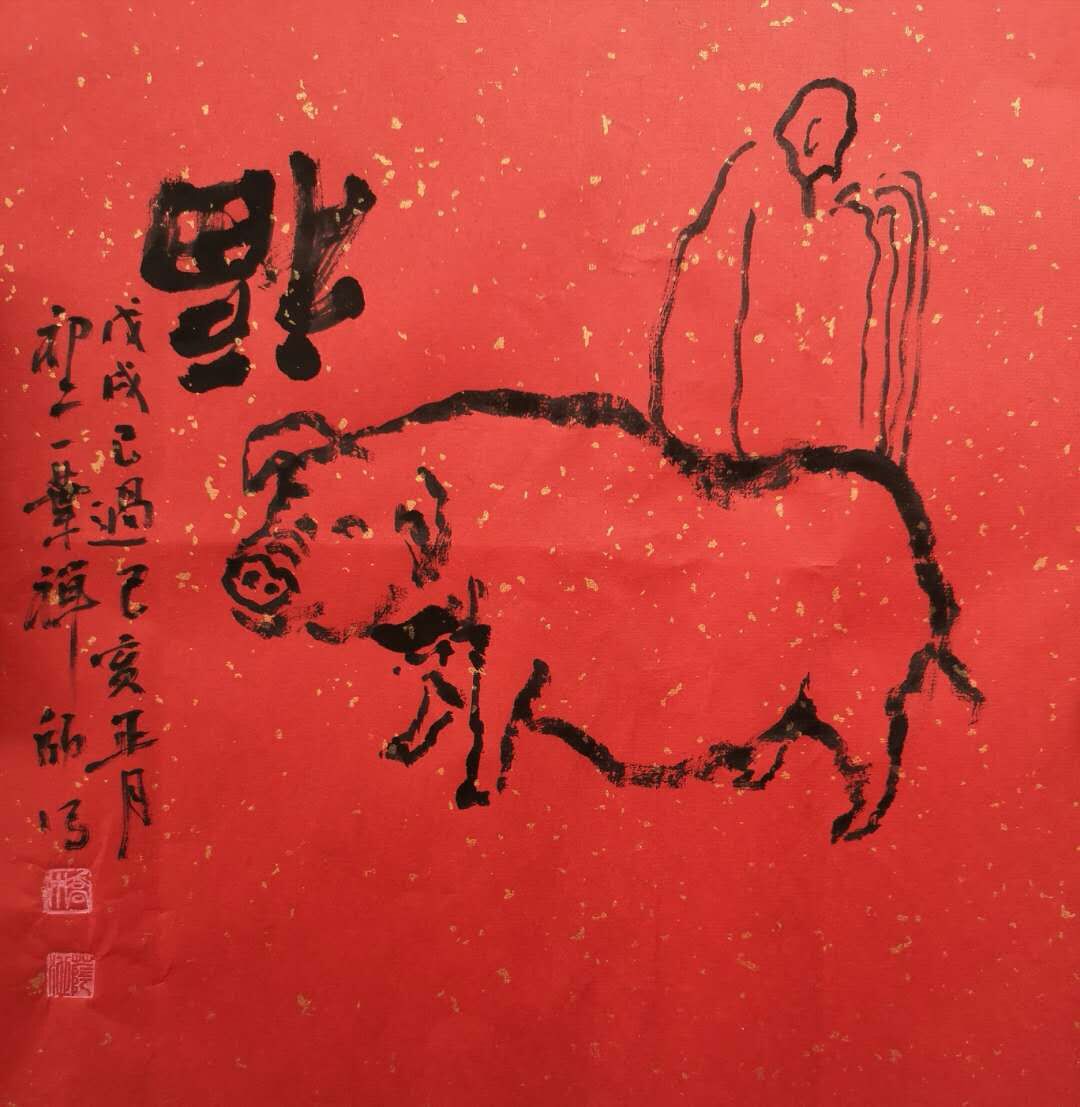 福
戊戌已過己亥正月
初二一葉禪師写